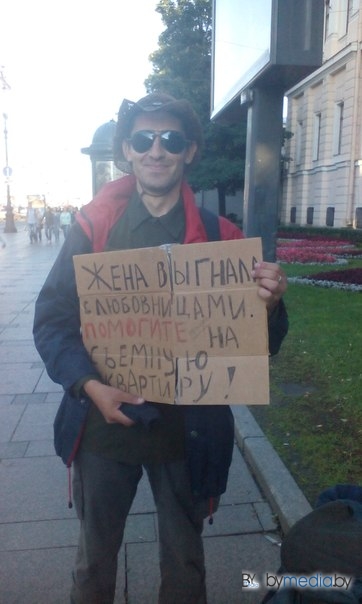 ЖЕНА ВЫГНАЛА
С ЛЮБОВНИЦАМИ.
ПОМОГИТЕ НА
СЪЕМНУЮ
КВАРТИРУ!
bymedia.by